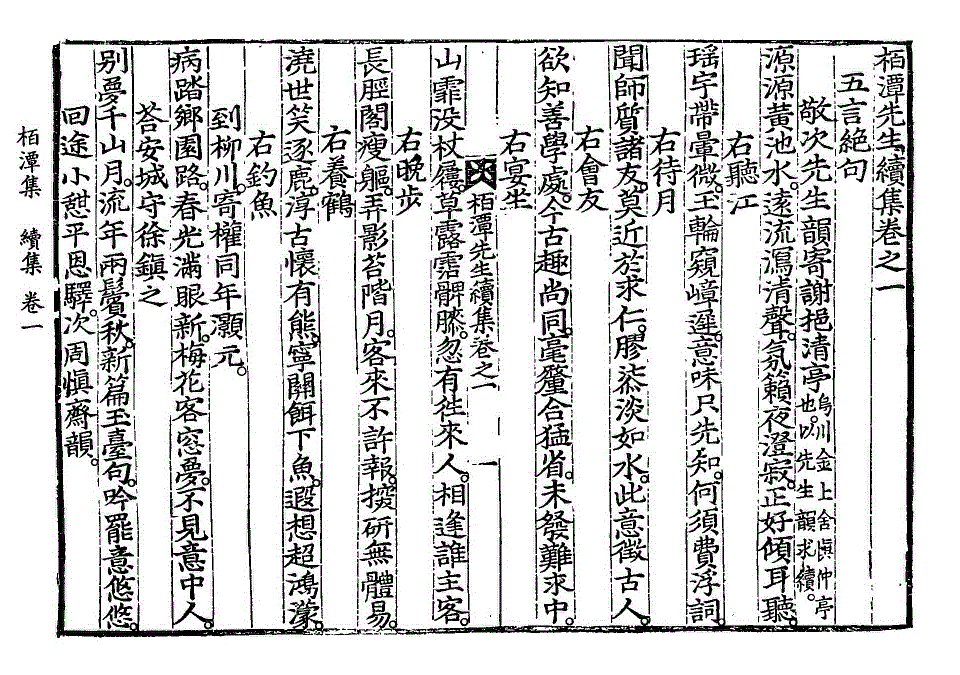 栢潭先生續集卷之一
五言絶句
敬次先生韻寄謝挹淸亭烏川金上舍愼仲亭也以先生韻求續。
源源黃池水。遠流瀉淸聲。氛籟夜澄寂。正好傾耳聽。
右聽江
瑶宇帶暈微。玉輪窺嶂遲。意味只先知。何須費浮詞。
右待月
聞師質諸友。莫近於求仁。膠漆淡如水。此意徵古人。
右會友
欲知善學處。今古趣尙同。毫釐合猛省。未發難求中。
右宴坐
栢潭先生續集卷之一 一
山霏没杖屨。草露霑髀膝。忽有往來人。相逢誰主客。
右晩步
長脛閣瘦軀。弄影苔階月。客來不許報。撥研無體易。
右養鶴
澆世笑逐鹿。淳古懷有熊。寧關餌下魚。遐想超鴻濛。
右釣魚
到柳川。寄權同年灝元。
病踏鄕園路。春光滿眼新。梅花客窓夢。不見意中人。
答安城守徐鎭之
別夢千山月。流年兩鬢秋。新篇玉臺句。吟罷意悠悠。
回途小憇平恩驛。次周愼齋韻。
栢潭集 續集 卷一